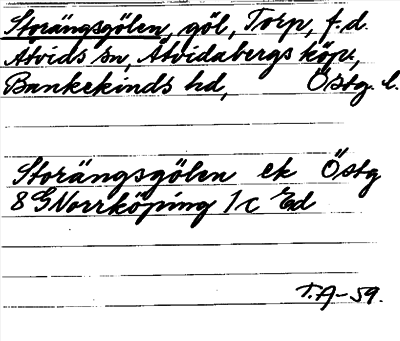 Storängsgölen, göl, Torp, f.d.
Åtvids sn, Åtvidabergs köp.,
Bankekinds hd, Östg. l.
Storängsgölen ek Östg
8 G Norrköping 1c Ed
T.A-59.